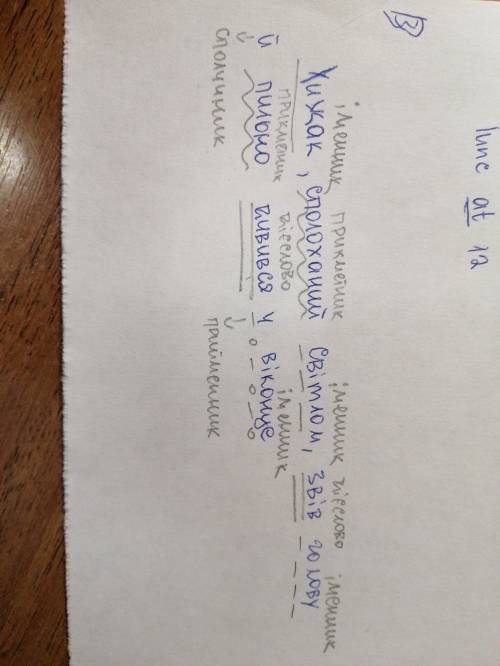 lunc at 12
3
іменник прикметник іменник дієслово іменник
Хижак, сполоханий світлом, звів голову
прикметник дієслово іменник
й пильно дивився у віконце
сполучник прийменник